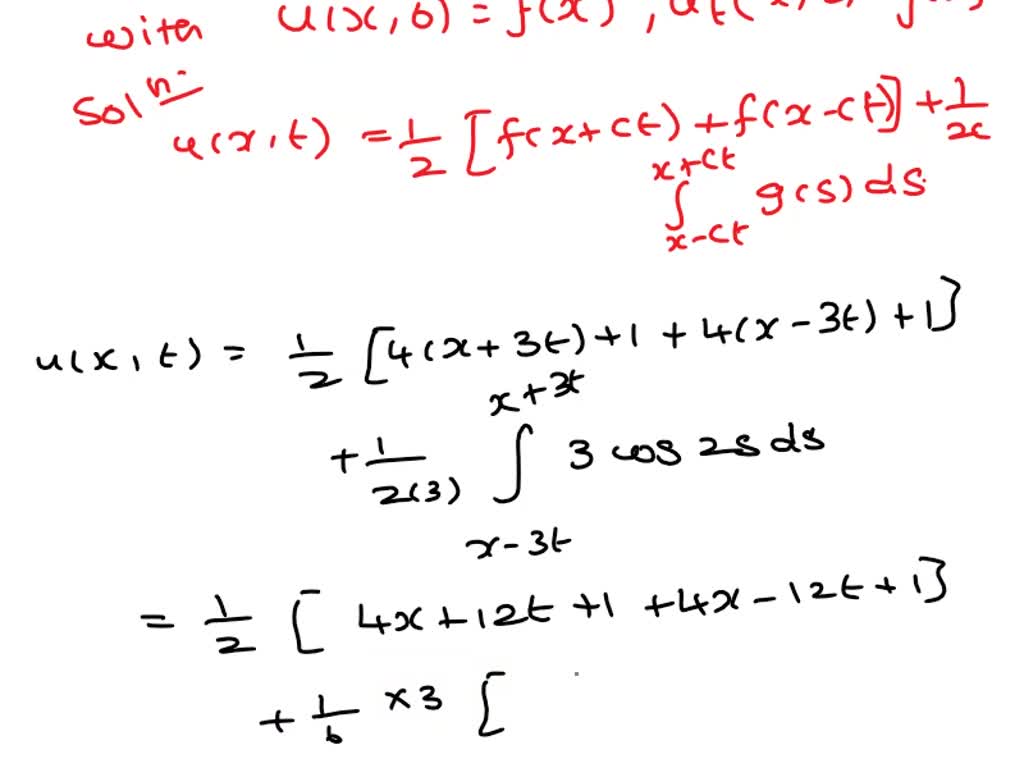 with u(x,0) = f(x),
Soln:
u(x,t) = 1/2 [f(x+ct) + f(x-ct)] + 1/2c
∫_{x-ct}^{x+ct} g(s) ds
u(x,t) = 1/2 [4(x+3t)+1 + 4(x-3t)+1]
+ 1/2(3) ∫_{x-3t}^{x+3t} 3 cos 2s ds
= 1/2 [4x+12t+1+4x-12t+1]
+ 1/6 ×3 [